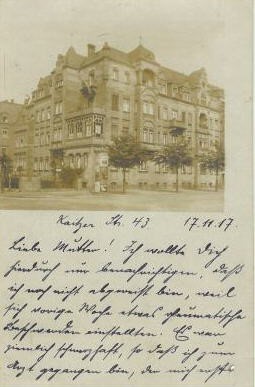 Kaitzer Str. 43 17.11.17.
Liebe Mutter! Ich wollte Dich
hierdurch nur benachrichtigen, daß
ich noch nicht abgereist bin, weil
sich vorige Woche etwas rheumatische
Beschwerden einstellten. Es war
ziemlich schmerzhaft, so daß ich zum
Arzt gegangen bin, der mich erst